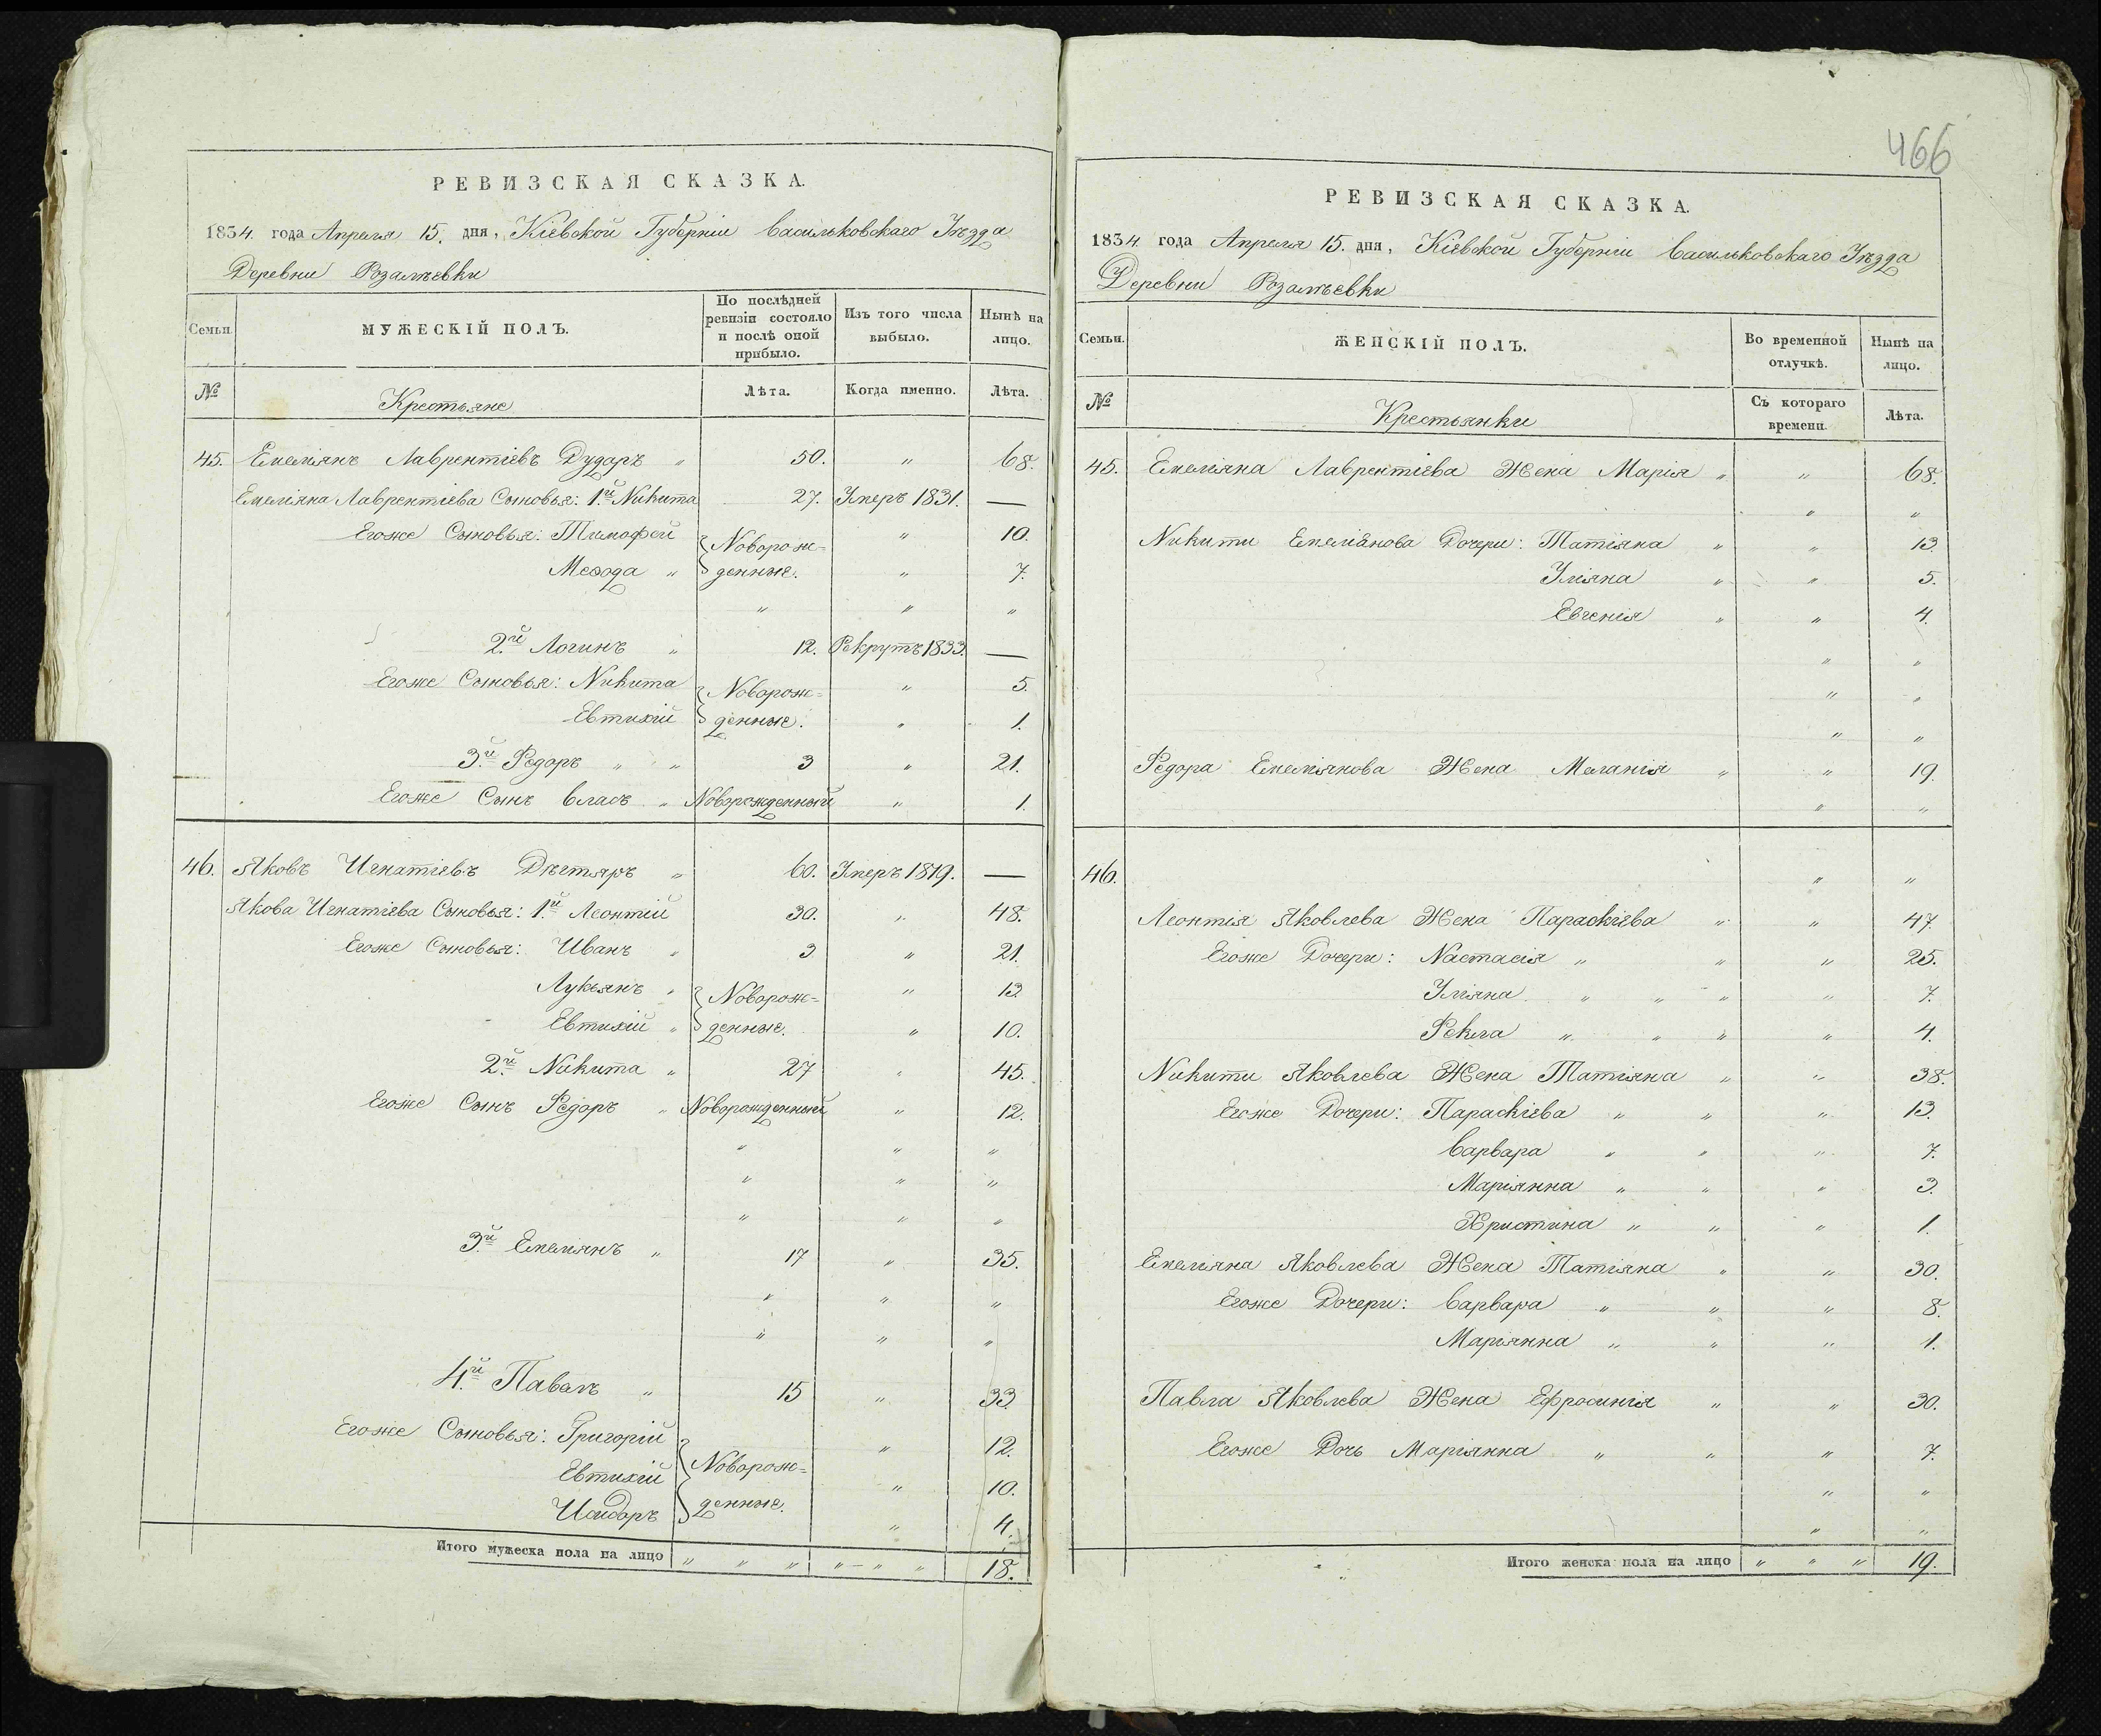 РЕВИЗСКАЯ СКАЗКА.
1834. года Апреля 15. дня, Кіевской Губерніи Васильковскаго Уѣзда
Деревни Розалѣевки
Семьи.
МУЖЕСКІЙ ПОЛЪ.
По послѣдней ревизіи состояло и послѣ оной прибыло.
Изъ того числа выбыло.
Нынѣ на лицо.
№
Крестьяне
Лѣта.
Когда именно.
Лѣта.
45. Емеліянъ Лаврентіевъ Дударъ " 50. " 68.
Емеліяна Лаврентіева Сыновья: 1й Никита 27. Умеръ 1831. —
Егоже Сыновья: Тимофей Новорож= " 10.
Меѳода " денные. " 7.
" " "
2.й Логинъ " 12. Рекрутъ 1833. —
Егоже Сыновья: Никита Новорож= " 5.
Евтихій денные. " 1.
3.й Федоръ " " 3 " 21.
Егоже Сынъ Власъ " Новорожденный " 1.
46. Яковъ Игнатіевъ Дѣгтяръ " 60. Умеръ 1819. —
Якова Игнатіева Сыновья: 1.й Леонтій 30. " 48.
Егоже Сыновья: Иванъ " 3 " 21.
Лукьянъ " Новорож= " 13.
Евтихій " денные. " 10.
2.й Никита " 27 " 45.
Егоже Сынъ Федоръ " Новорожденный " 12.
" " "
" " "
" " "
3.й Емеліянъ " 17 " 35.
" " "
" " "
4.й Павелъ " 15 " 33.
Егоже Сыновья: Григорій " 12.
Евтихій Новорож= " 10.
Исидоръ денные. " 4.
Итого мужеска пола на лицо " " " " — " " 18.
466
РЕВИЗСКАЯ СКАЗКА.
1834 года Апреля 15. дня, Кіевской Губерніи Васильковскаго Уѣзда
Деревни Розалѣевки
Семьи.
ЖЕНСКІЙ ПОЛЪ.
Во временной отлучкѣ.
Нынѣ на лицо.
№
Крестьянки
Съ котораго времени.
Лѣта.
45. Емеліяна Лаврентіева Жена Марія " " 68.
" "
Никиты Емеліянова Дочери: Татіяна " " 13.
Уліяна " " 5.
Евгенія " " 4.
" "
" "
" "
Федора Емеліянова Жена Меланія " " 19.
" "
46. " "
Леонтія Яковлева Жена Параскіева " " 47.
Егоже Дочери: Настасія " " " 25.
Уліяна " " " " 7.
Фекла " " " " 4.
Никиты Яковлева Жена Татіяна " " 38.
Егоже Дочери: Параскіева " " " 13.
Варвара " " " 7.
Маріянна " " " 3.
Христина " " " 1.
Емеліяна Яковлева Жена Татіяна " " 30.
Егоже Дочери: Варвара " " " 8.
Маріянна " " " 1.
Павла Яковлева Жена Ефросинія " " 30.
Егоже Дочь Маріянна " " " 7.
" "
" "
Итого женска пола на лицо " " " 19.